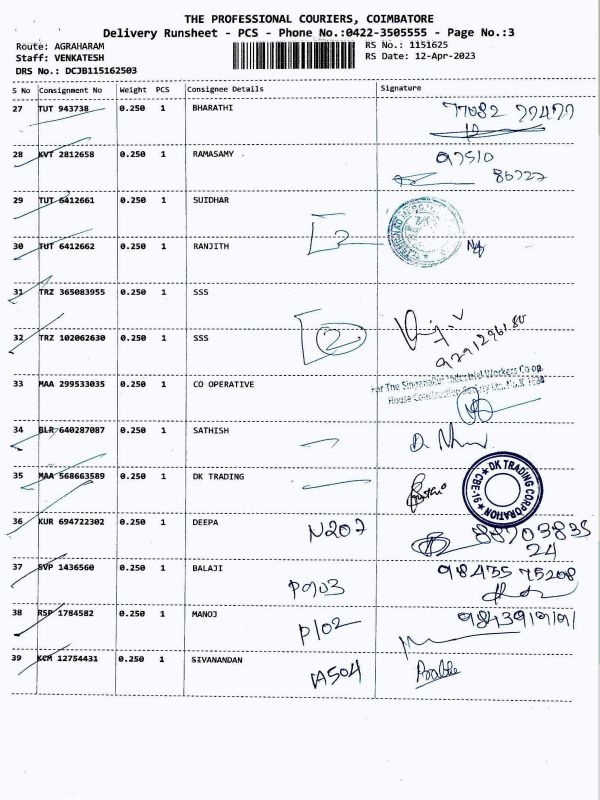 THE PROFESSIONAL COURIERS, COIMBATORE
Delivery Runsheet - PCS - Phone No.:0422-3505555 - Page No.:3
Route: AGRAHARAM RS No.: 1151625
Staff: VENKATESH RS Date: 12-Apr-2023
DRS No.: DCJB115162503
S No Consignment No Weight PCS Consignee Details Signature
27 TUT 943738 0.250 1 BHARATHI 77082 77477
28 KVT 2812658 0.250 1 RAMASAMY 97510
86727
29 TUT 6412661 0.250 1 SUIDHAR
30 TUT 6412662 0.250 1 RANJITH 2
31 TRZ 365083955 0.250 1 SSS
32 TRZ 102062630 0.250 1 SSS 2 9791296180
33 MAA 299533035 0.250 1 CO OPERATIVE For The Singanallur Industrial Workers Co op.
House Construction Society
34 BLR 640287087 0.250 1 SATHISH
35 MAA 568663589 0.250 1 DK TRADING
DK TRADING CORPORATION CBE-19
36 KUR 694722302 0.250 1 DEEPA N207 88703835
24
37 SVP 1436560 0.250 1 BALAJI P903 98435 75208
38 RSP 1784582 0.250 1 MANOJ P102 9843919191
39 KCM 12754431 0.250 1 SIVANANDAN A504